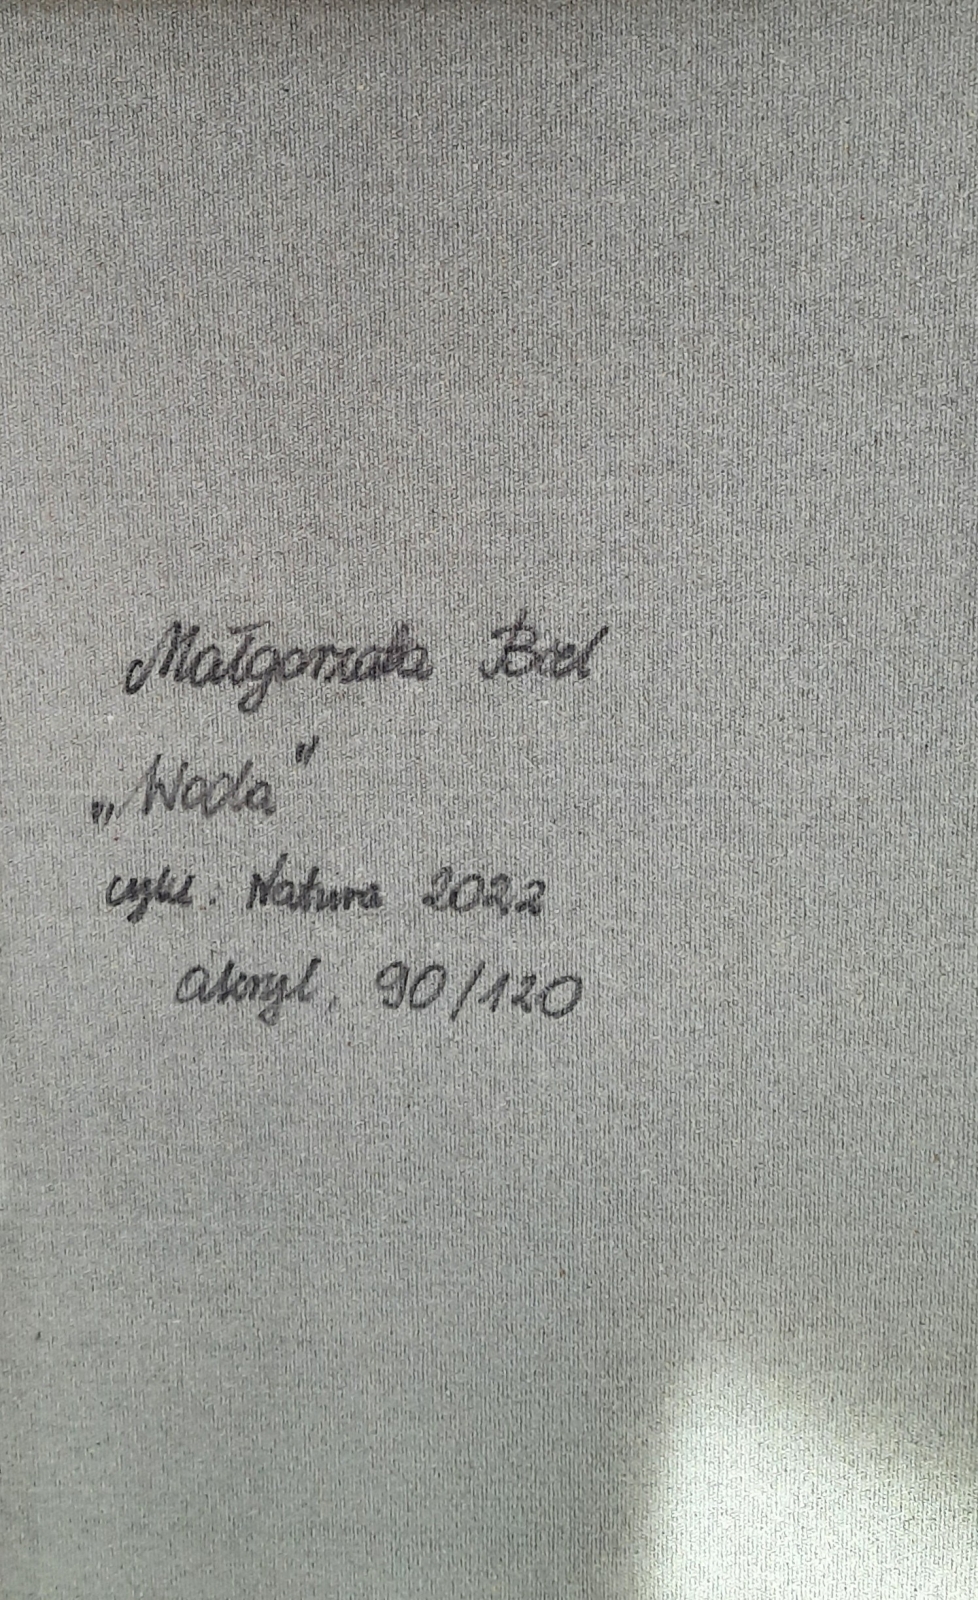 Małgorzata Biel
„Woda"
cykl. Natura 2022
akryl, 90/120